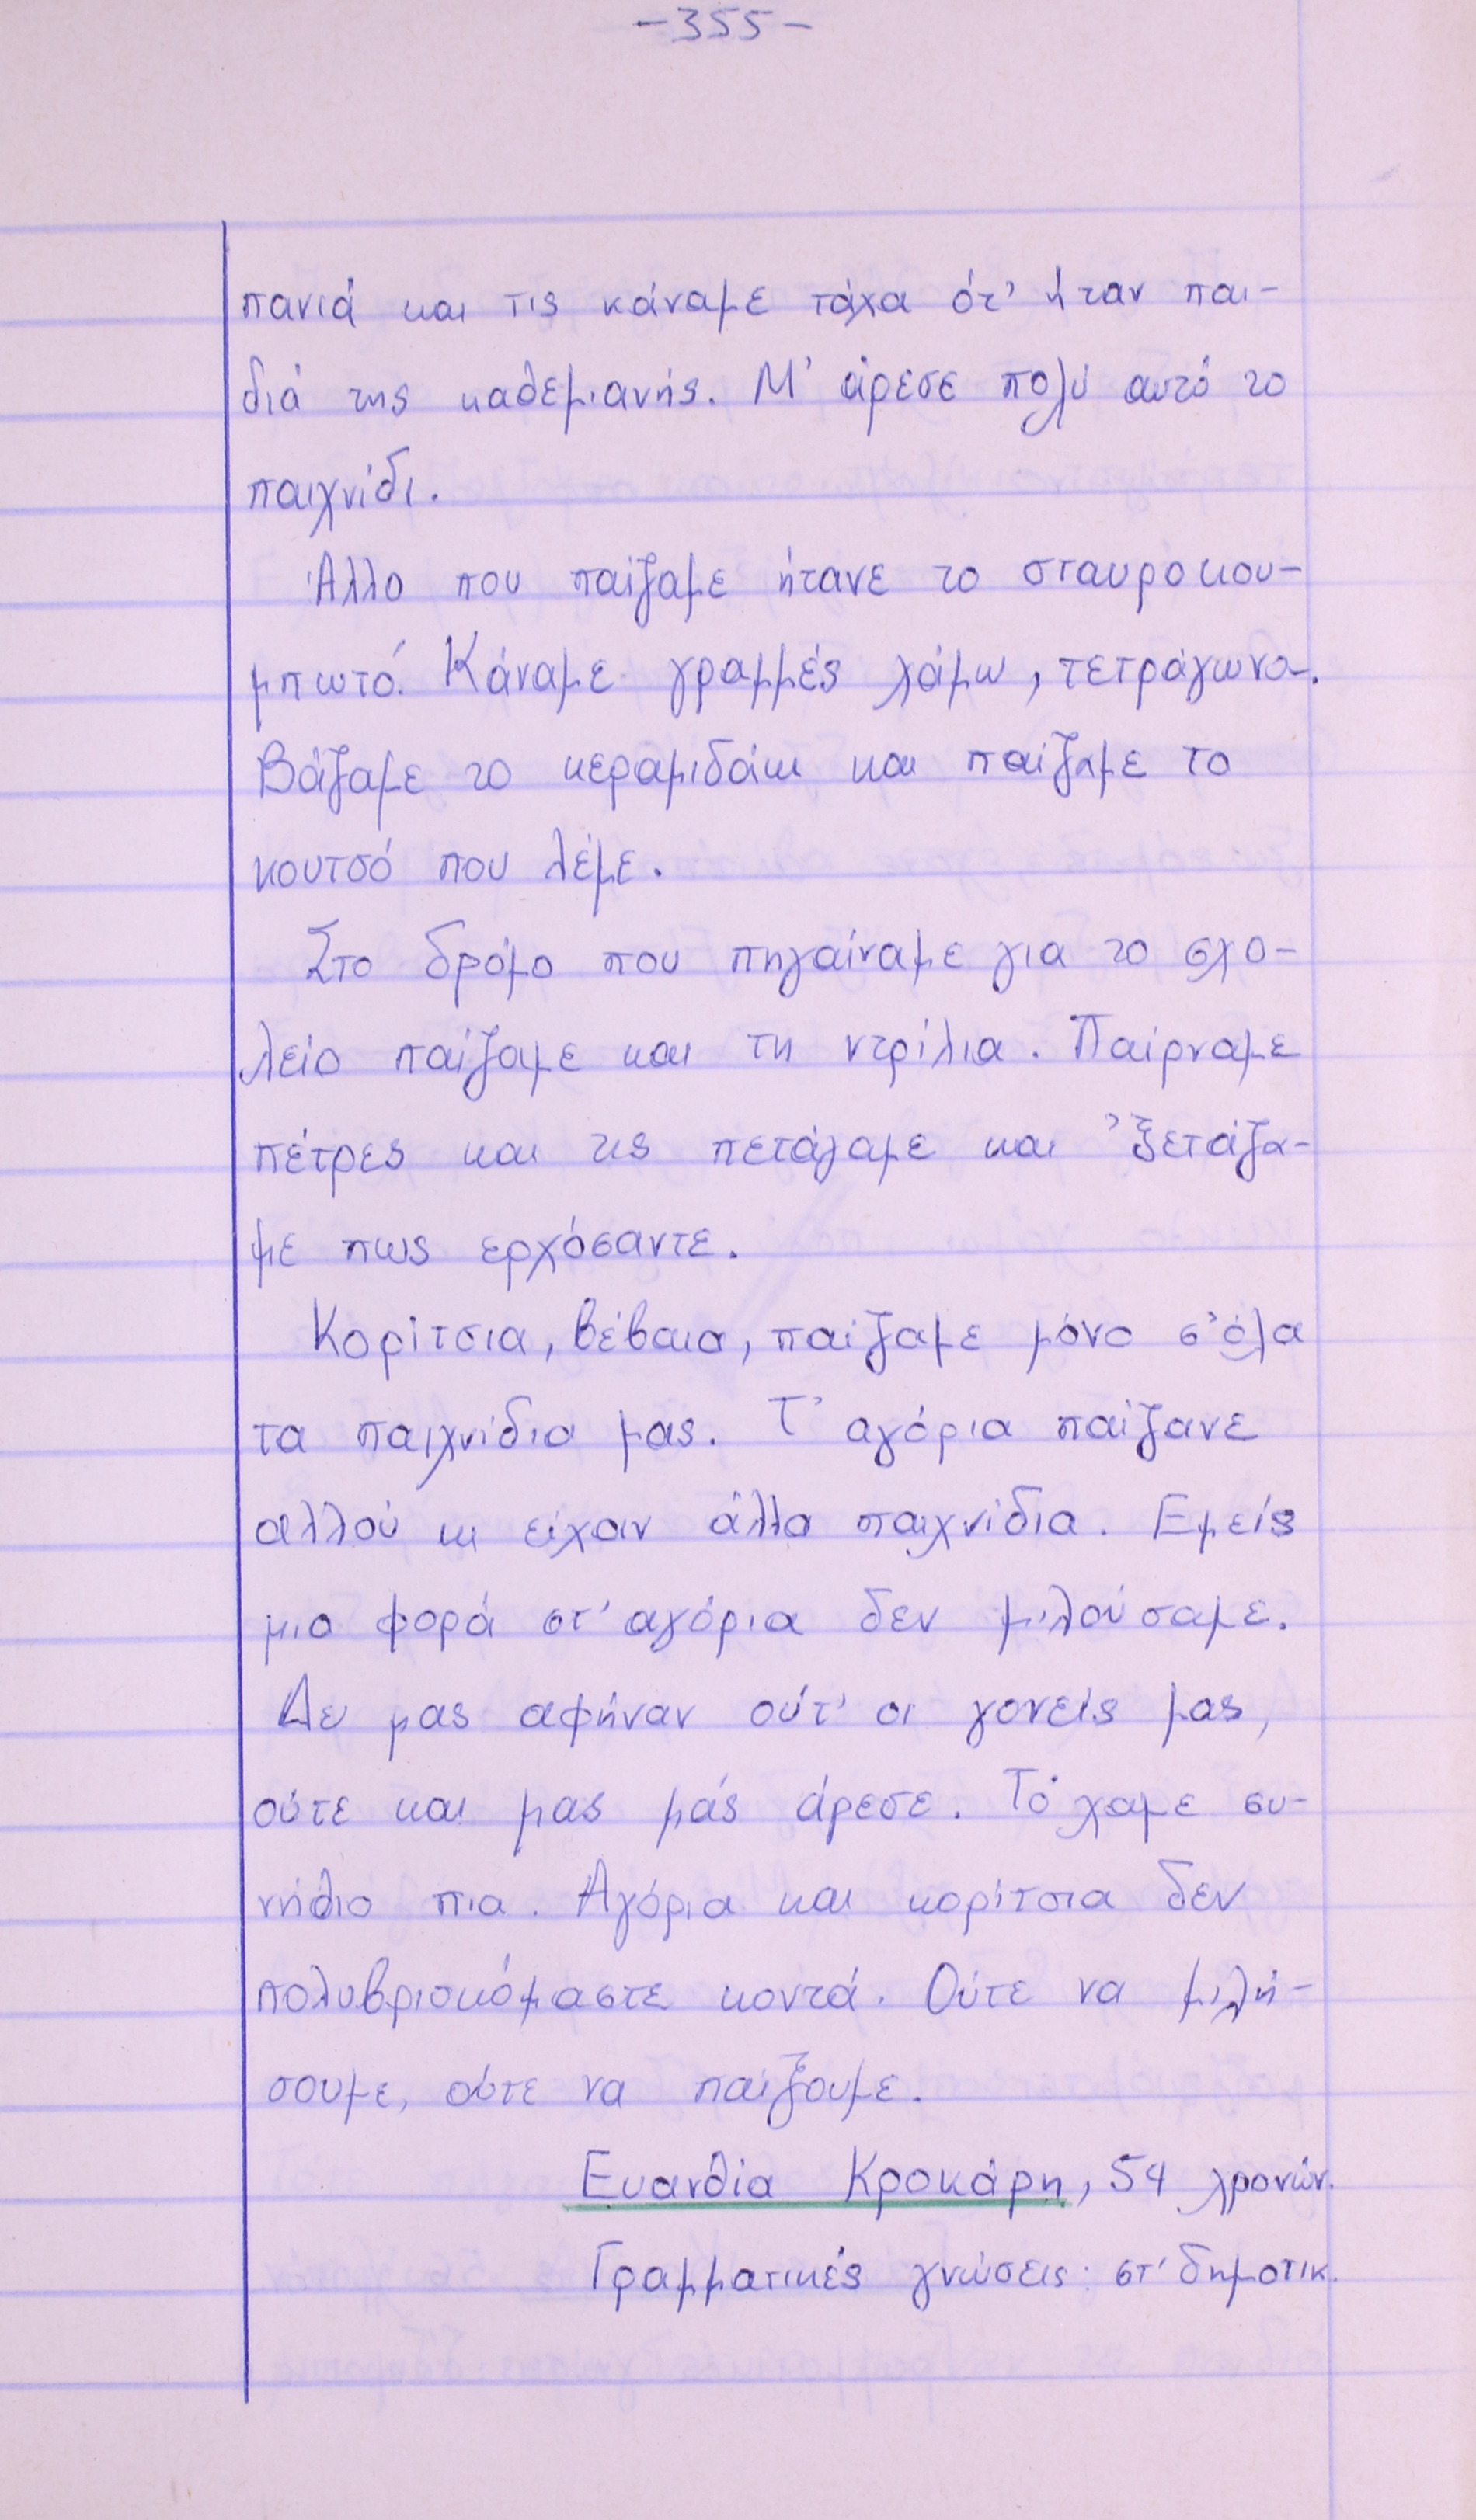 -355-
πανιά και τις κάναμε τάχα ότ' ήταν παι-
διά της καθεμιανής. Μ' άρεσε πολύ αυτό το
παιχνίδι.
Άλλο που παίζαμε ήτανε το σταυροκου-
μπωτό. Κάναμε γραμμές χάμω, τετράγωνα.
Βάζαμε το κεραμιδάκι και παίζαμε το
κουτσό που λέμε.
Στο δρόμο που πηγαίναμε για το σχο-
λείο παίζαμε και τη ντρίλια. Παίρναμε
πέτρες και τις πετάγαμε και 'ξετάζα-
με πως ερχόσαντε.
Κορίτσια, βέβαια, παίζαμε μόνο σ' όλα
τα παιχνίδια μας. Τ' αγόρια παίζανε
αλλού κι είχαν άλλα παιχνίδια. Εμείς
μια φορά στ' αγόρια δεν μιλούσαμε.
Δε μας αφήναν ούτ' οι γονείς μας,
ούτε και μας μάς άρεσε. Τό χαμε συ-
νήθιο πια. Αγόρια και κορίτσια δεν
πολυβρισκόμαστε κοντά. Ούτε να μιλή-
σουμε, ούτε να παίξουμε.
Ευανθία Κροκάρη, 54 χρονών.
Γραμματικές γνώσεις: στ' δημοτικ.